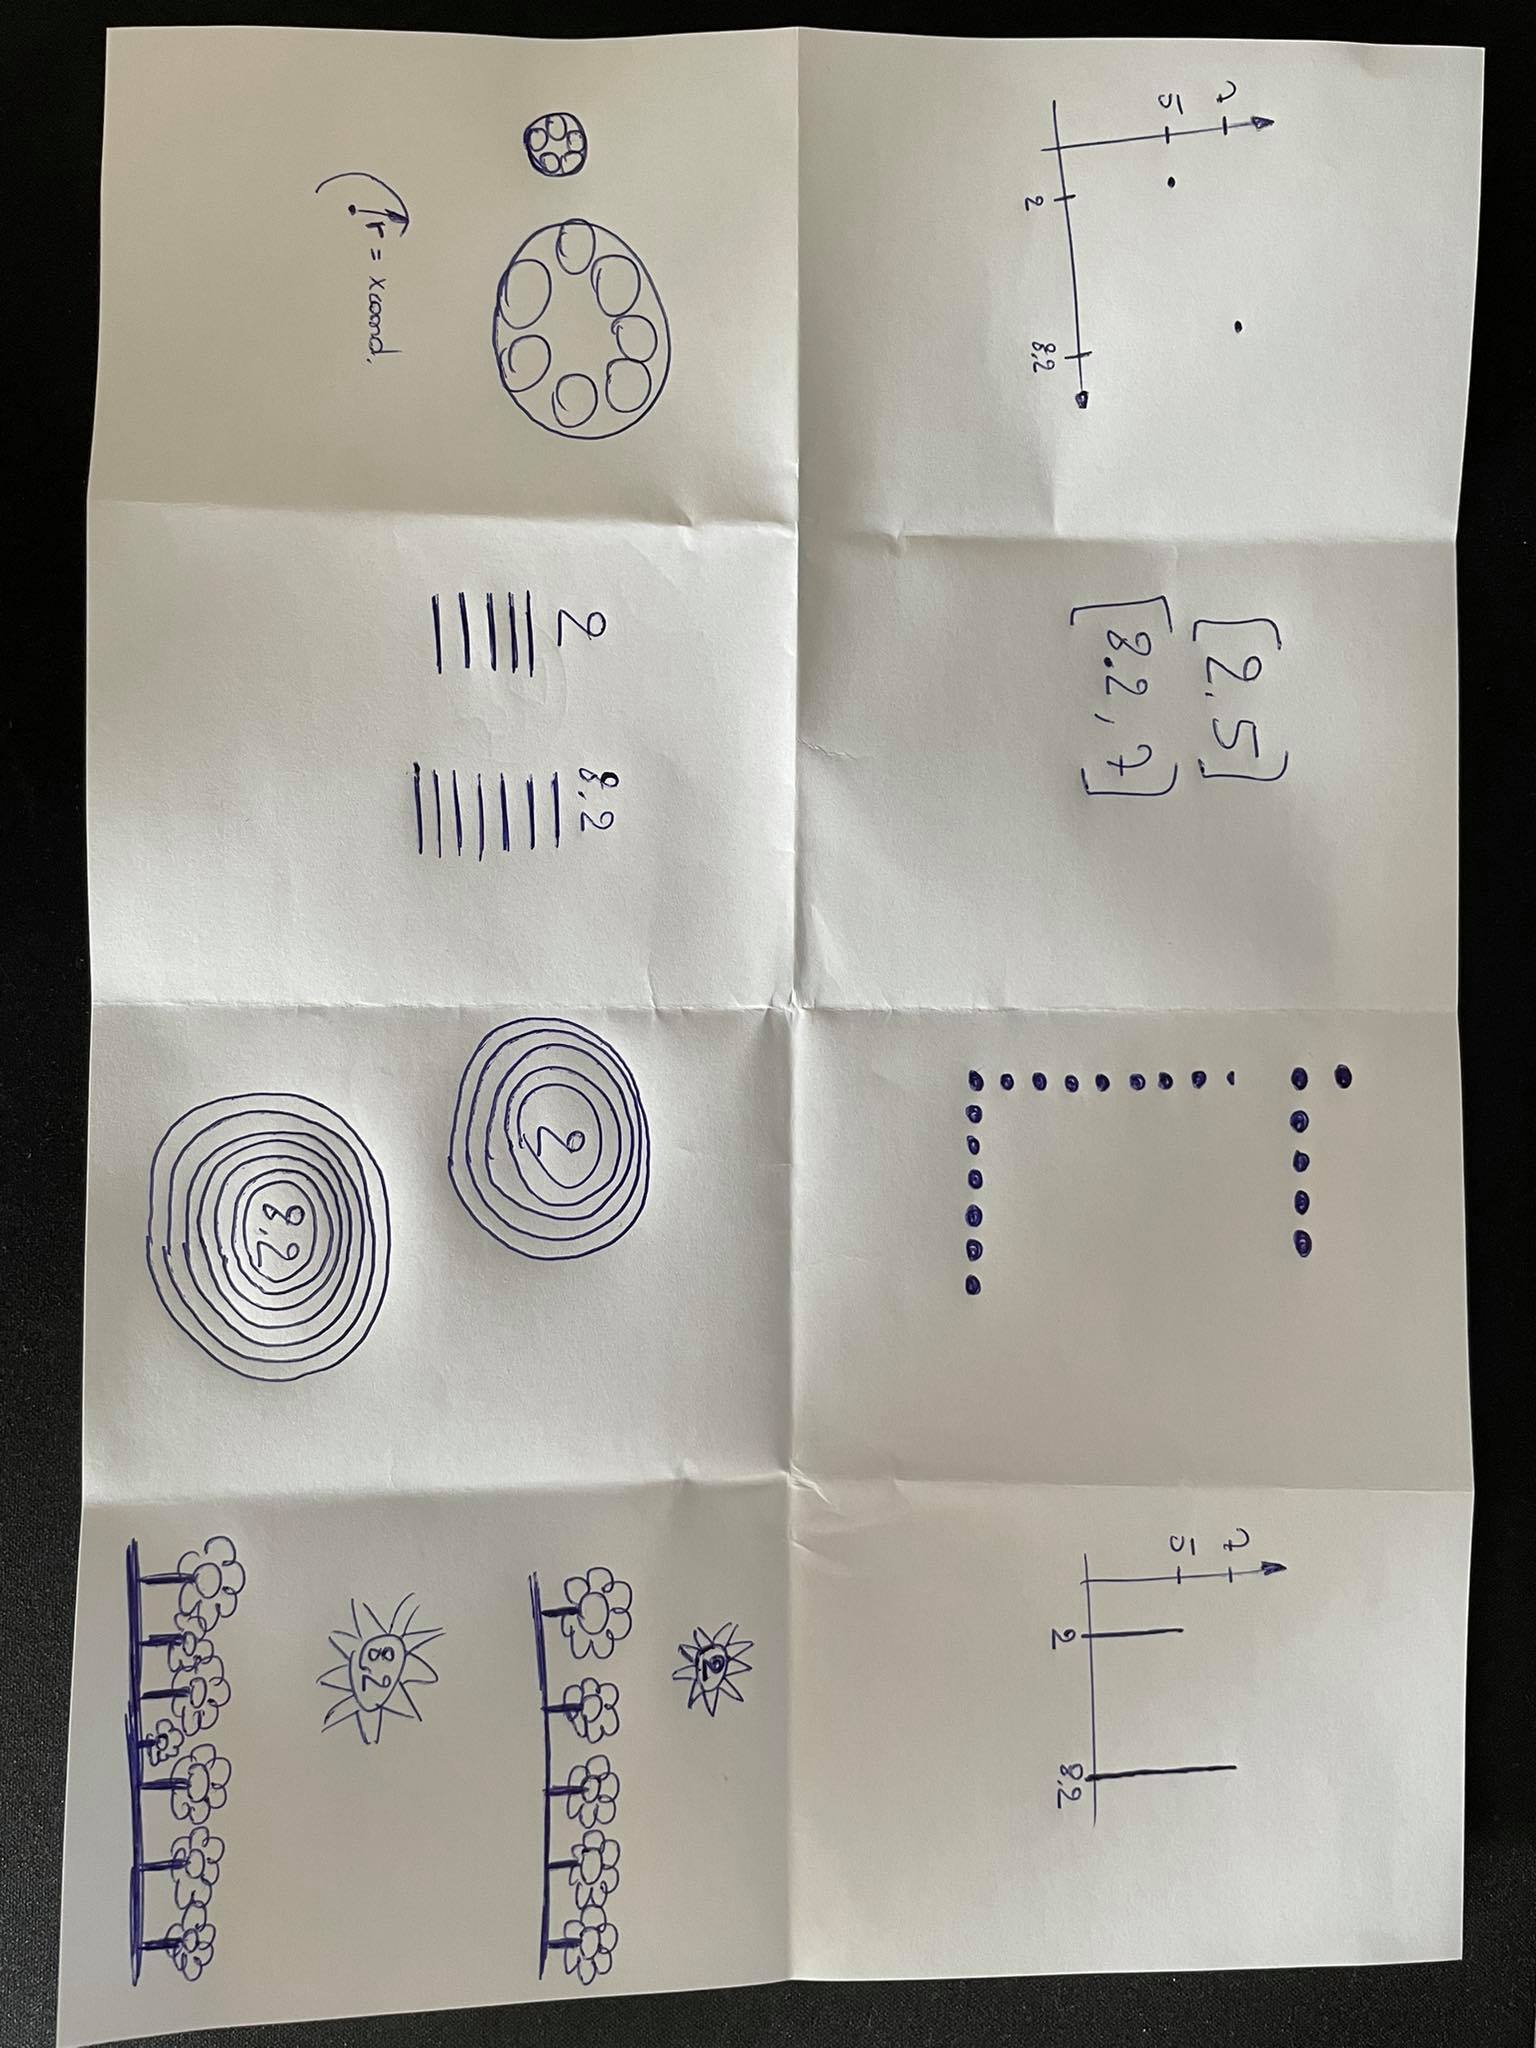 7
5
2 8.2
[2, 5]
[8.2, 7]
7
5
2 8,2
r = xcoord.
2 8,2
2
8,2
2
8,2